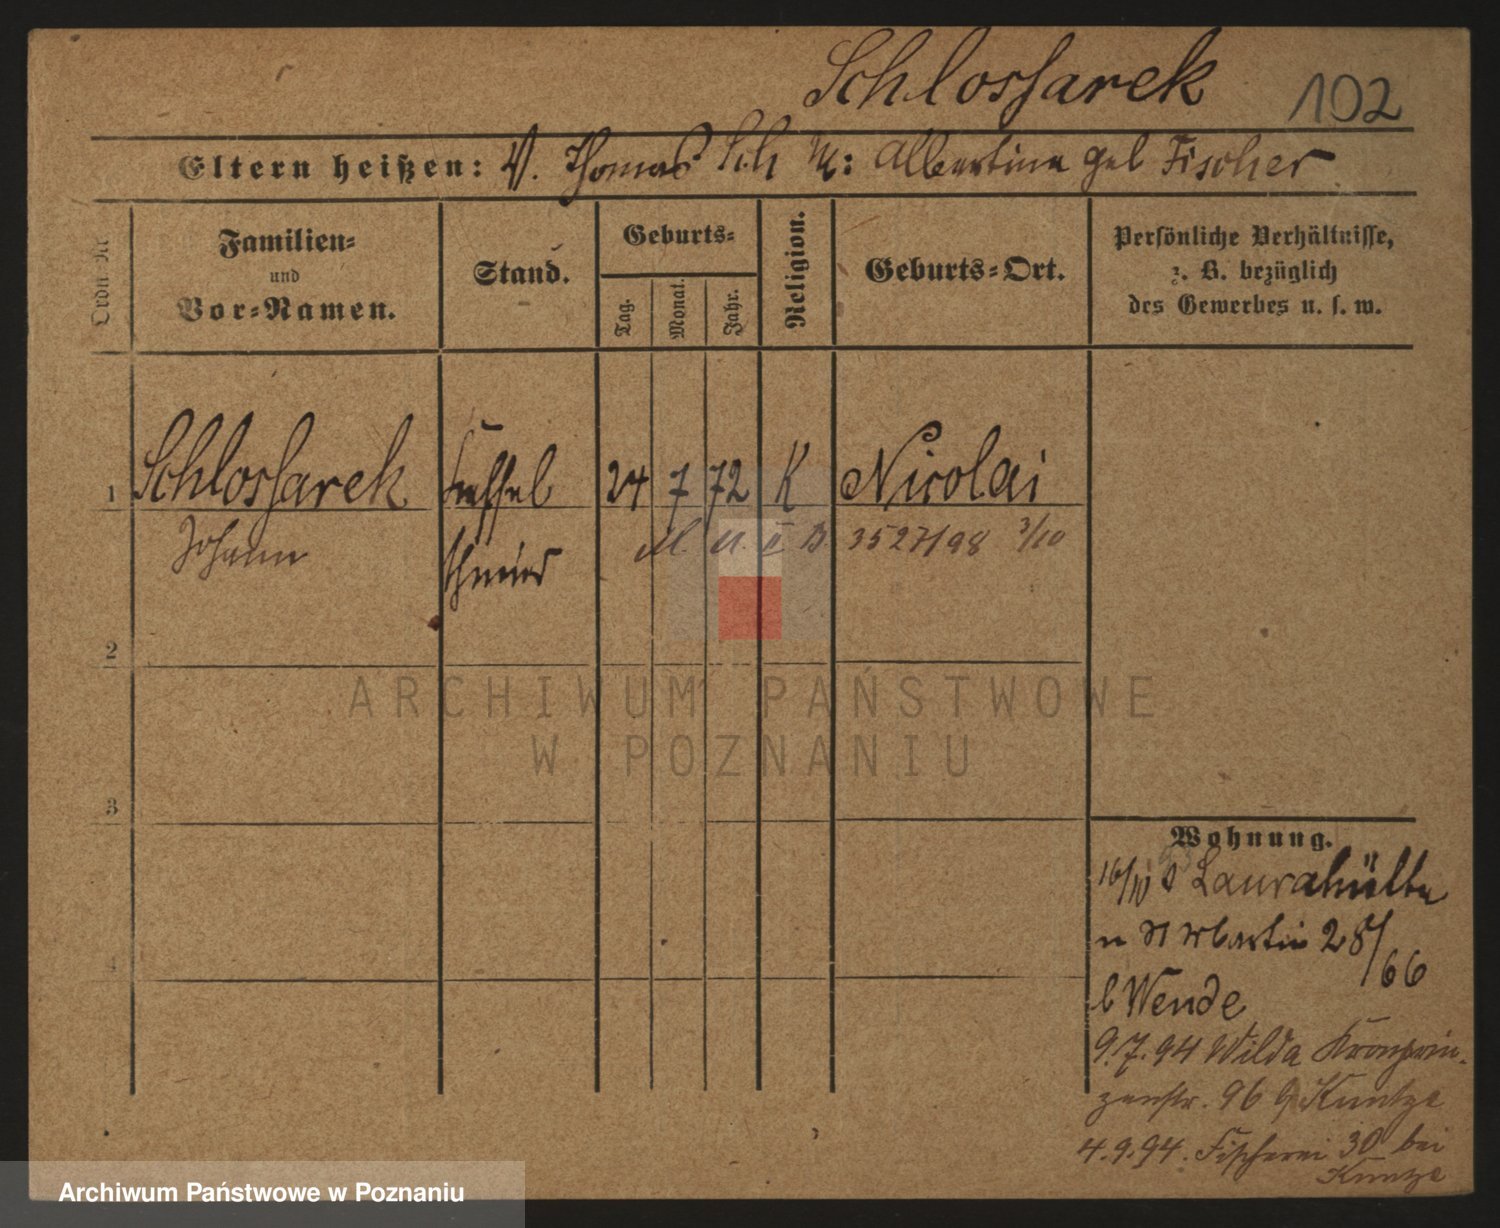 Schlossarek 102
Eltern heißen: V. Thomas Sch M: Albertine geb Fischer
Ordn Nr
Familien-
und
Vor-Namen.
Stand.
Geburts-
Tag.
Monat.
Jahr.
Religion.
Geburts-Ort.
Persönliche Verhältnisse,
z. B. bezüglich
des Gewerbes u. s. w.
1 Schlossarek Kessel 24 7 72 K Nicolai
Johann schmied
3527/98 3/10
2
3
4
Wohnung.
16/10 Laurahütte
n St Martin 28/
66
b Wende
9.7.94 Wilda Kronprin-
zenstr. 96 Kuntze
4.9.94. Fischerei 30 bei
Kuntze
ARCHIWUM PAŃSTWOWE
W POZNANIU
Archiwum Państwowe w Poznaniu